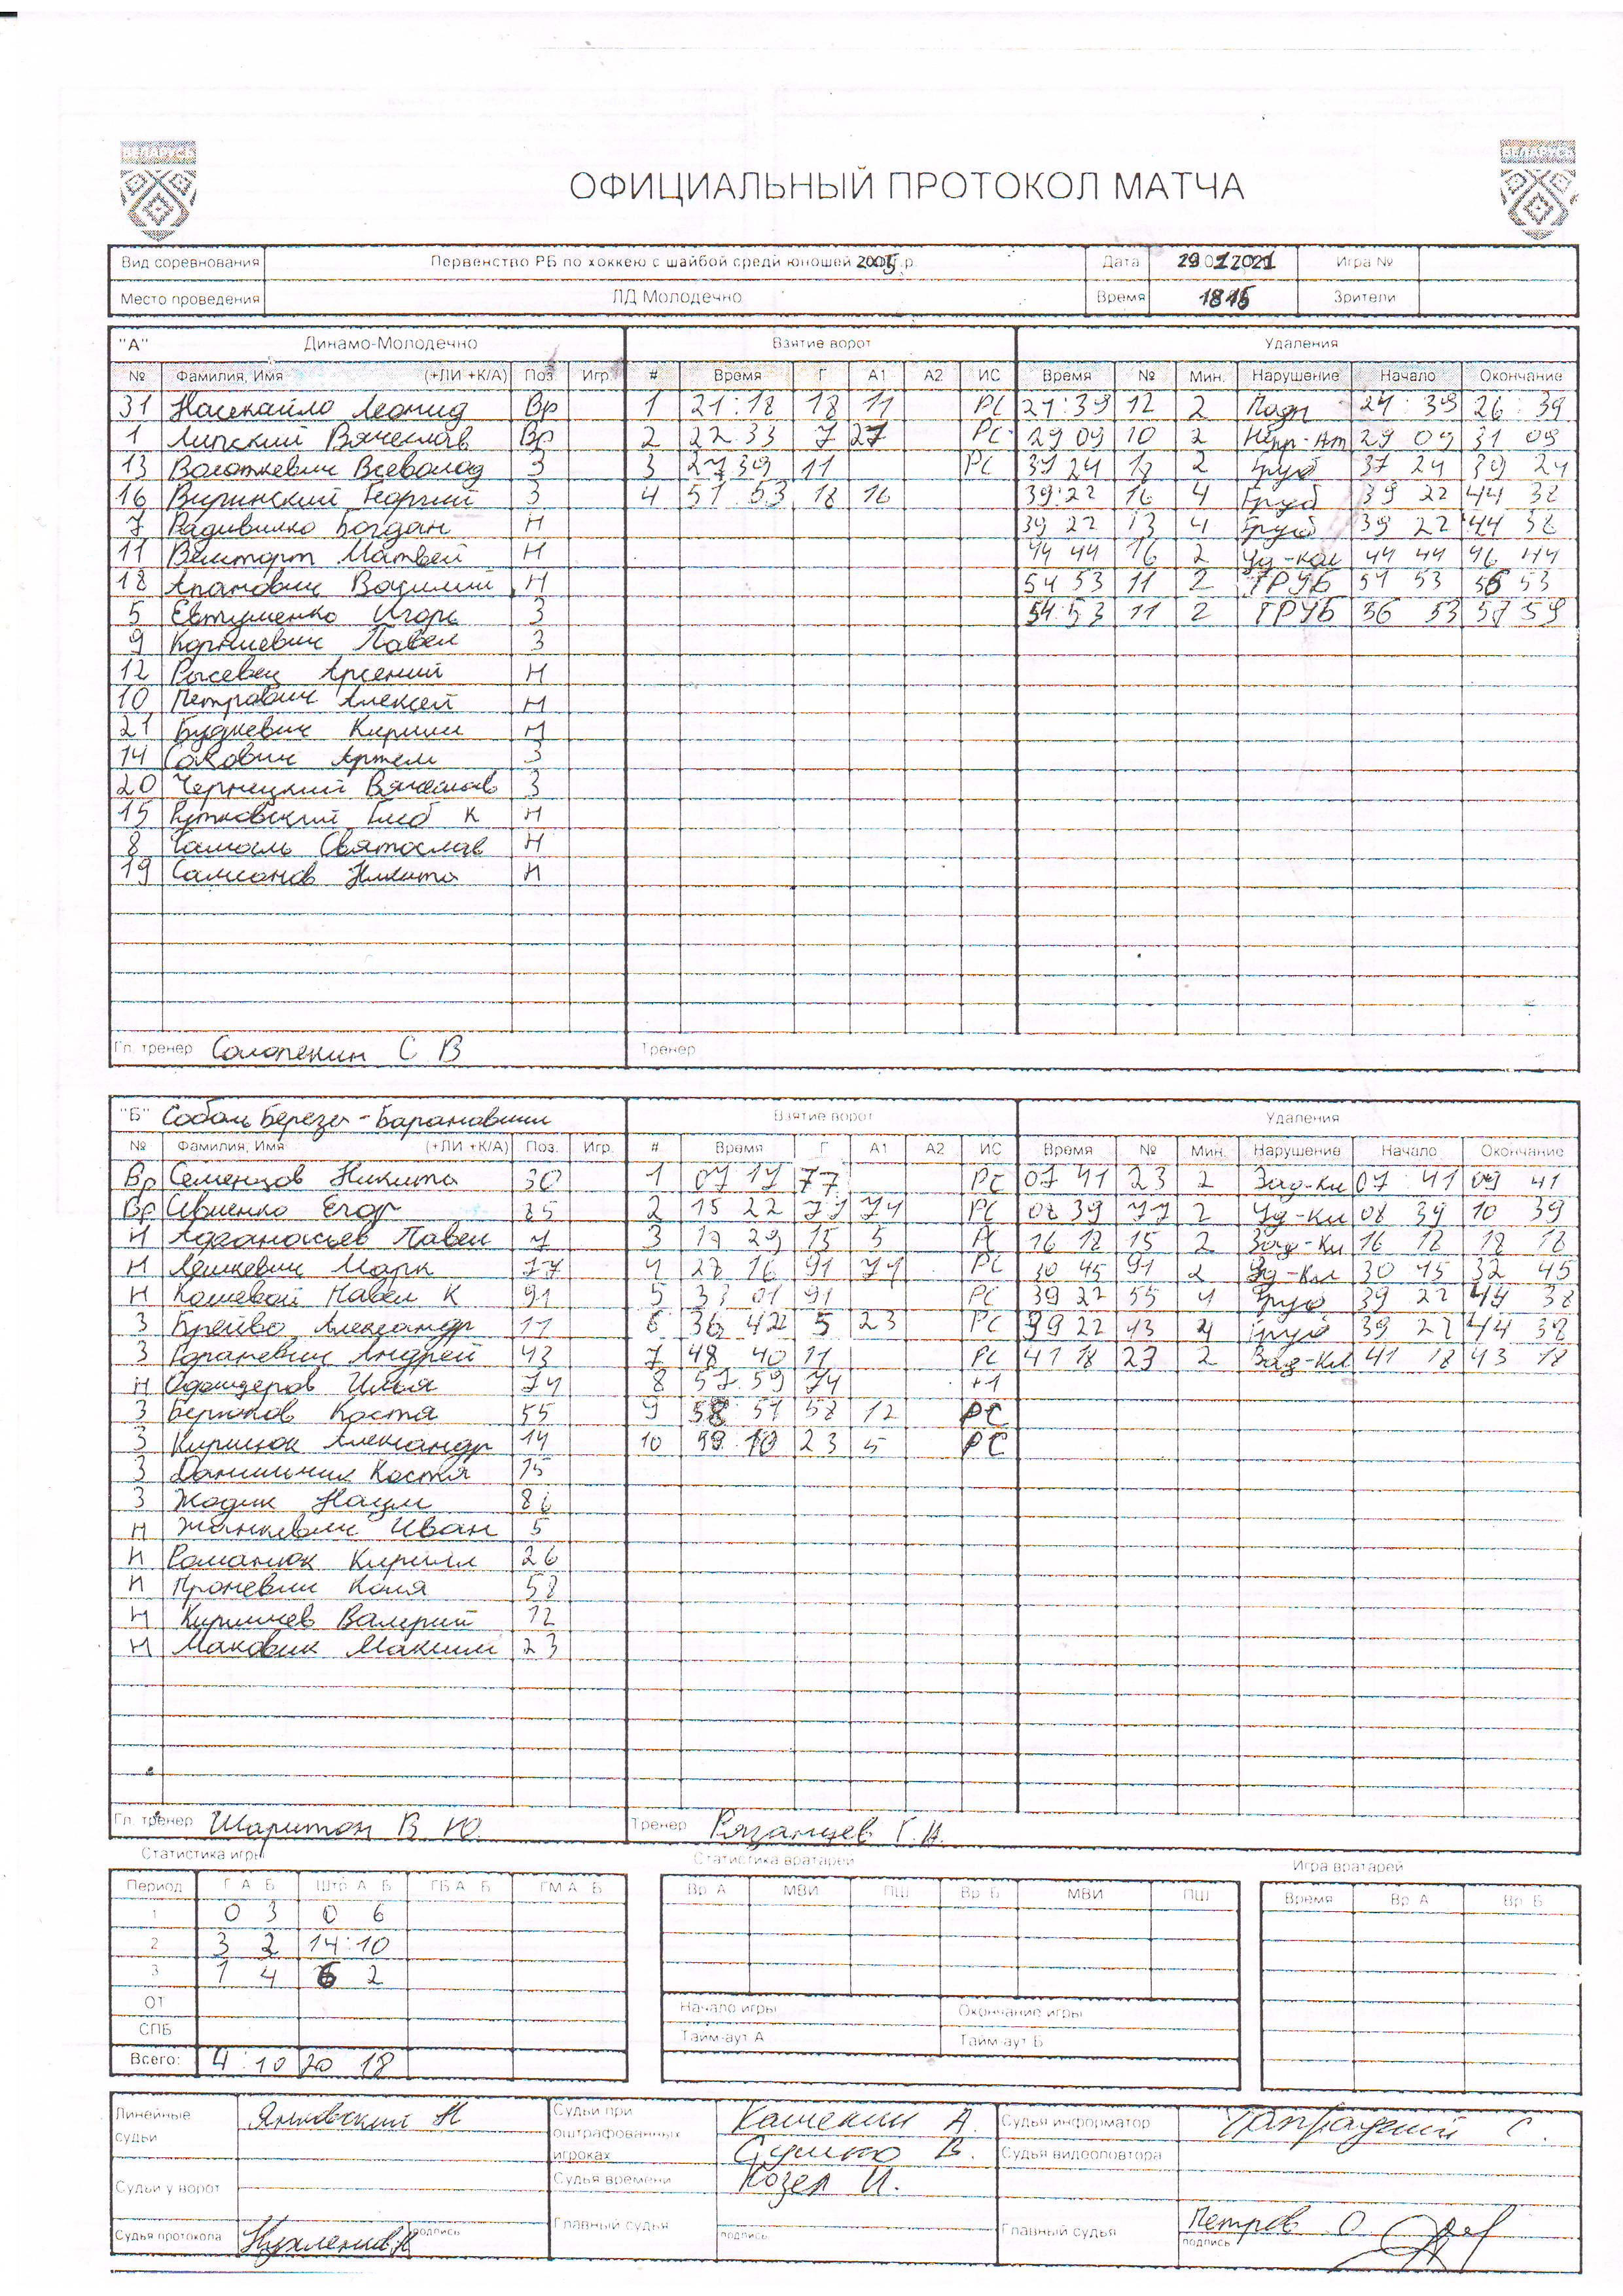 БЕЛАРУСЬ БЕЛАРУСЬ
ОФИЦИАЛЬНЫЙ ПРОТОКОЛ МАТЧА
Вид соревнования Первенство РБ по хоккею с шайбой среди юношей 2005 г.р. Дата 29.01.2021 Игра №
Место проведения ЛД Молодечно Время 1815 Зрители
"А" Динамо-Молодечно Взятие ворот Удаления
№ Фамилия, Имя (+ЛИ +К/А) Поз. Игр. # Время Г А1 А2 ИС Время № Мин. Нарушение Начало Окончание
31 Насекайло Леонид Вр 1 21:18 18 11 РС 24:39 12 2 Подн 24:39 26:39
1 Липский Вячеслав Вр 2 22 33 7 27 РС 29 09 10 2 Непр-Ат 29 09 31 09
13 Всеволод З 3 27 39 11 РС 37 24 18 2 Груб 37 24 39 24
16 Виринский Георгий З 4 51 53 18 16 39:22 16 4 Груб 39 22 44 38
7 Радивилко Богдан Н 39 22 13 4 Груб 39 22 44 38
11 Матвей Н 44 44 16 2 Уд-Кл 44 44 46 44
18 Апанович Василий Н 54 53 11 2 ГРУБ 54 53 56 53
5 Евтушенко Игорь З 54:53 11 2 ГРУБ 56 53 57 59
9 Корниевич Павел З
12 Рысевец Арсений Н
10 Петрович Алексей Н
21 Будкевич Кирилл Н
14 Сакович Артем З
20 Чернецкий Вячеслав З
15 Рутковский Глеб К Н
8 Святослав Н
19 Самсонов Никита Н
Гл. тренер Солопекин С В Тренер
"Б" Соболь Береза-Барановичи Взятие ворот Удаления
№ Фамилия, Имя (+ЛИ +К/А) Поз. Игр. # Время Г А1 А2 ИС Время № Мин. Нарушение Начало Окончание
Вр Семенцов Никита 30 1 07 17 77 РС 07 41 23 2 Зад-Кл 07 41 09 41
Вр Севненко Егор 85 2 15 22 77 74 РС 08 39 77 2 Уд-Кл 08 39 10 39
Н Афанасьев Павел 7 3 19 29 15 5 РС 16 18 15 2 Зад-Кл 16 18 18 18
Н Лешкевич Марк 77 4 28 16 91 74 РС 30 45 91 2 Уд-Кл 30 45 32 45
Н Кошевой Павел К 91 5 33 01 91 РС 39 22 55 4 Груб 39 22 44 38
З Брейво Александр 11 6 36 42 5 23 РС 39 22 43 4 Груб 39 22 44 38
З Гораневич Андрей 43 7 48 40 11 РС 41 18 23 2 Зад-Кл 41 18 43 18
Н Илья 74 8 57 59 74 +1
З Бирюков Костя 55 9 58 51 58 12 РС
З Киришюк Александр 14 10 59 10 23 5 РС
З Данильчик Костя 15
З Жодик Наум 86
Н Жанкевич Иван 5
Н Романюк Кирилл 26
Н Проневич Коля 58
Н Киришев Валерий 12
Н Маковик Максим 23
Гл. тренер Шаритон В Ю. Тренер Рязанцев Г.И.
Статистика игры Статистика вратарей Игра вратарей
Период Г А Б Штр А Б ГБ А Б ГМ А Б Вр. А МВИ ПШ Вр. Б МВИ ПШ Время Вр. А Вр. Б
1 0 3 0 6
2 3 2 14:10
3 1 4 6 2
ОТ
СПБ
Всего: 4:10 20 18
Начало игры Окончание игры
Тайм-аут А Тайм-аут Б
Линейные судьи Янковский Н Судьи при оштрафованных игроках Кашекин А. Судья информатор С.
Сушко В. Судья видеоповтора
Судьи у ворот Судья времени Козел И.
Судья протокола подпись Главный судья подпись Главный судья Петров О подпись